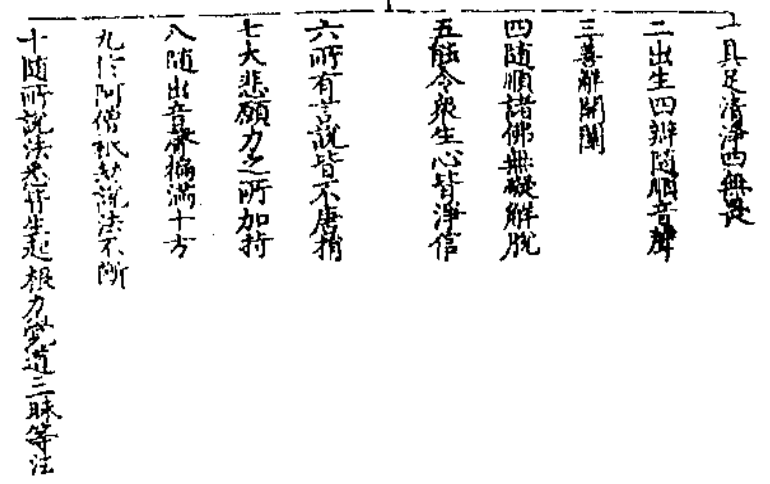 一具足清淨四無畏
二出生四辯隨順音聲
三善解開闡
四隨順諸佛無礙解脫
五能令衆生心皆淨信
六所有言說皆不唐捐
七大悲願力之所加持
八隨出音聲徧滿十方
九於阿僧祇劫說法不斷
十隨所說法悉能生起根力覺道三昧等法